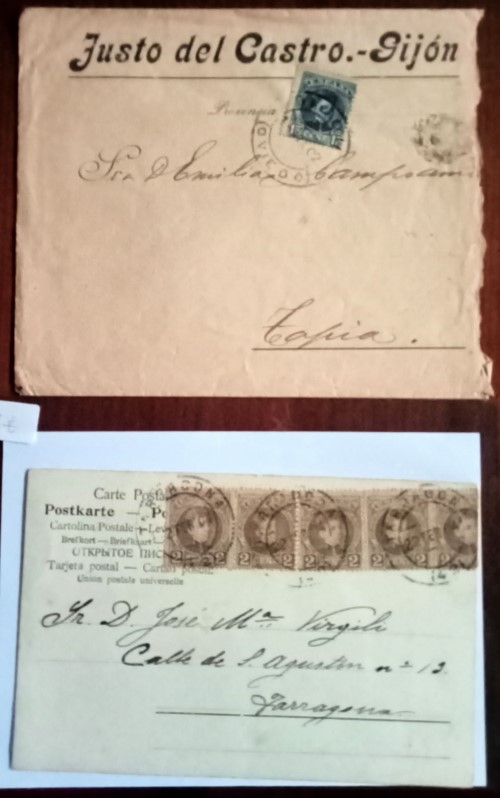 Justo del Castro.-Gijón
Provincia
Sr. D Emilio Campoamor
Tapia.
Carte Posta
Postkarte — Po
Cartolina Postale — Lev
Brefkort — Briefkaart
ОТКРЫТОЕ ПИСЬ
Tarjeta postal — Cartão postal
Union postale universelle
TARRAGONA
2 2 2 2 2 2 2 2 2
Sr. D. José Mª Virgili
Calle de S. Agustin nº 13.
Tarragona